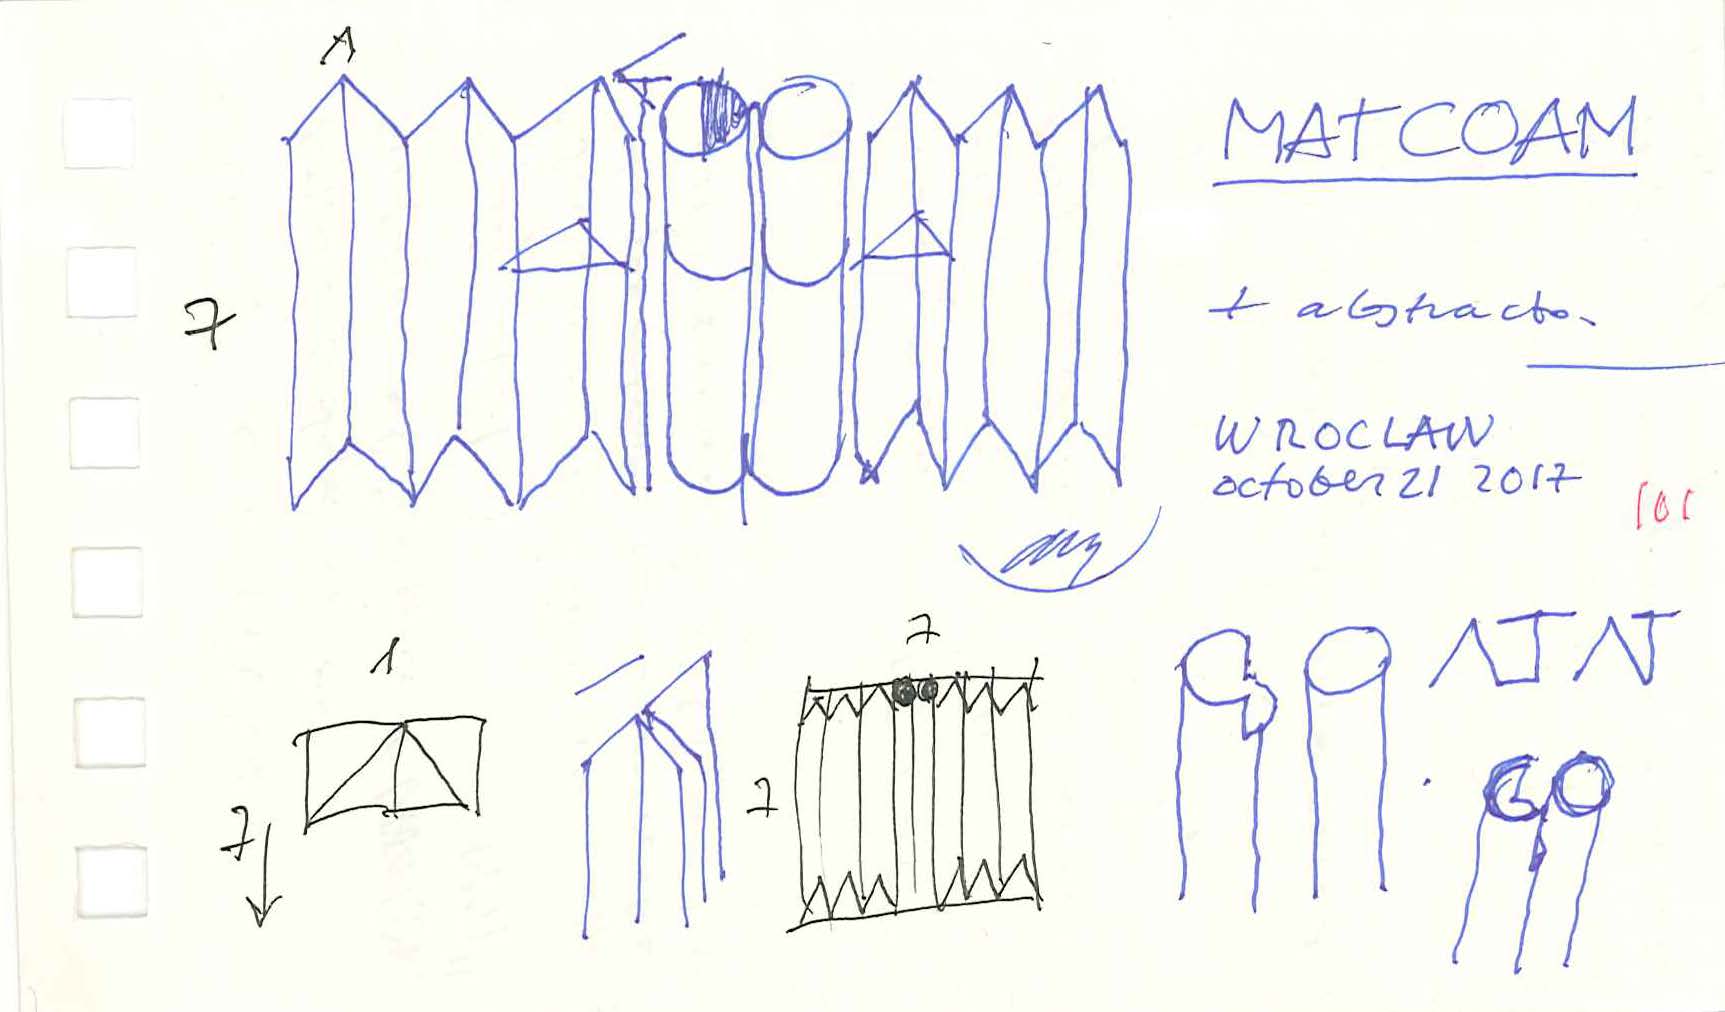 A
MATCOAM
7
+ abstracto.
WROCLAW
october 21 2017
101
1
7
7
7